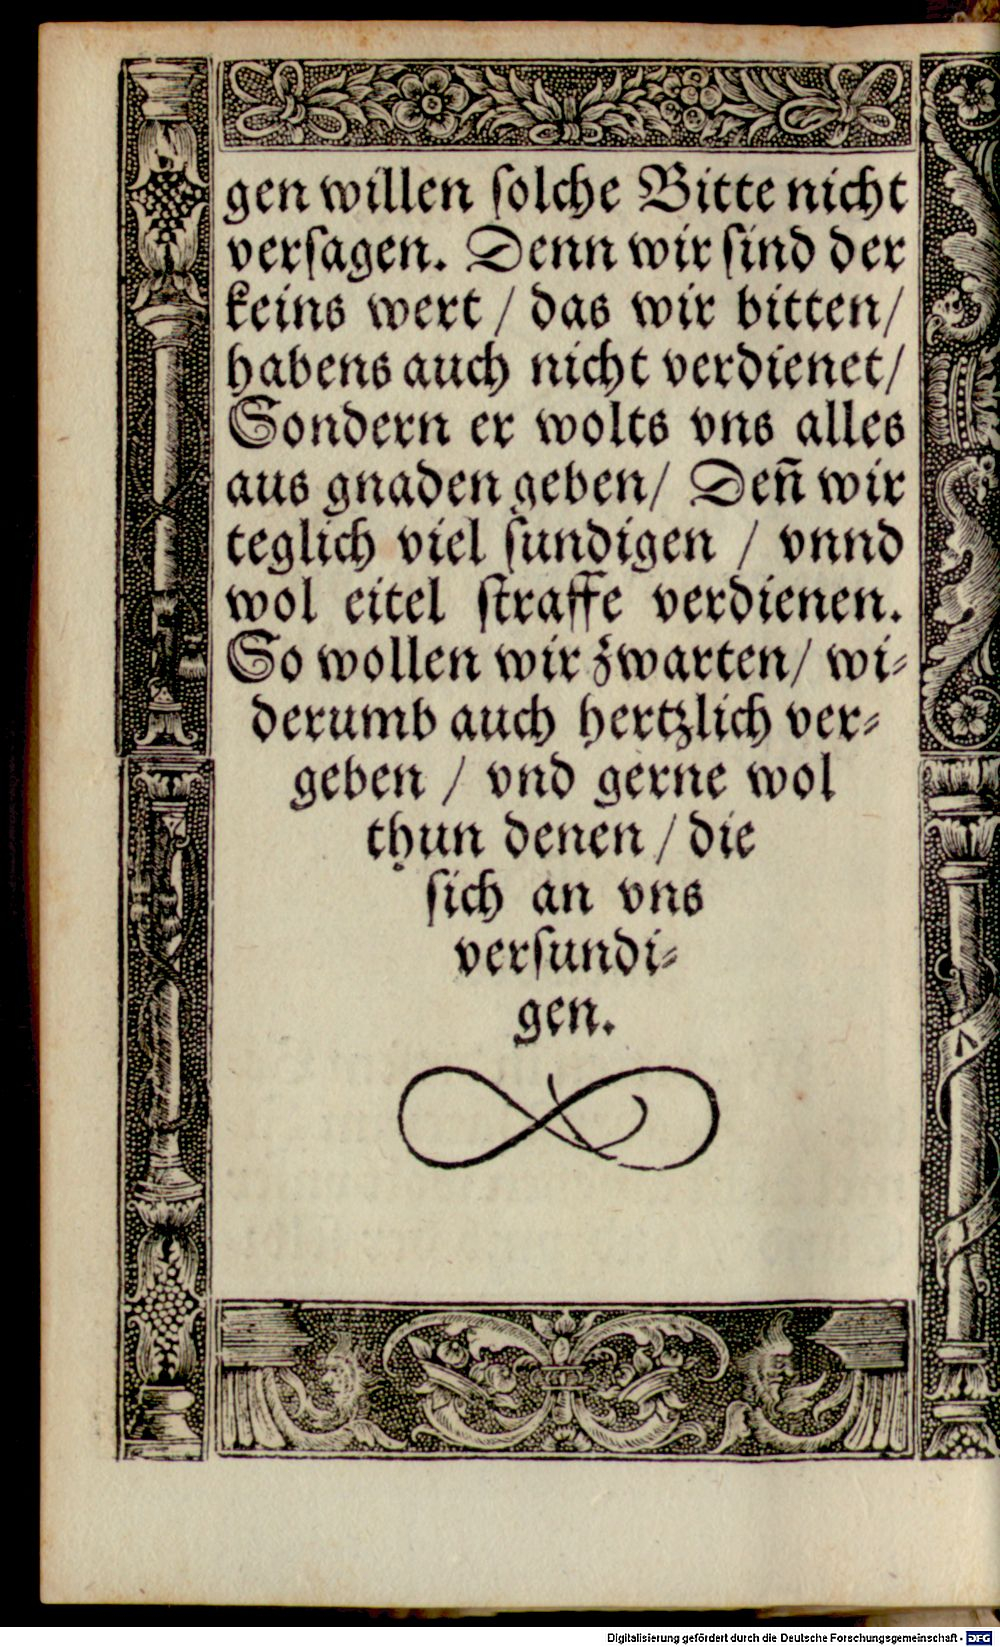 gen willen ſolche Bitte nicht
verſagen. Denn wir ſind der
keins wert / das wir bitten/
habens auch nicht verdienet/
Sondern er wolts vns alles
aus gnaden geben/ Deñ wir
teglich viel ſundigen / vnnd
wol eitel ſtraffe verdienen.
So wollen wir zwarten/ wi⸗
derumb auch hertzlich ver⸗
geben / vnd gerne wol
thun denen / die
ſich an vns
verſundi⸗
gen.
Digitalisierung gefördert durch die Deutsche Forschungsgemeinschaft - DFG